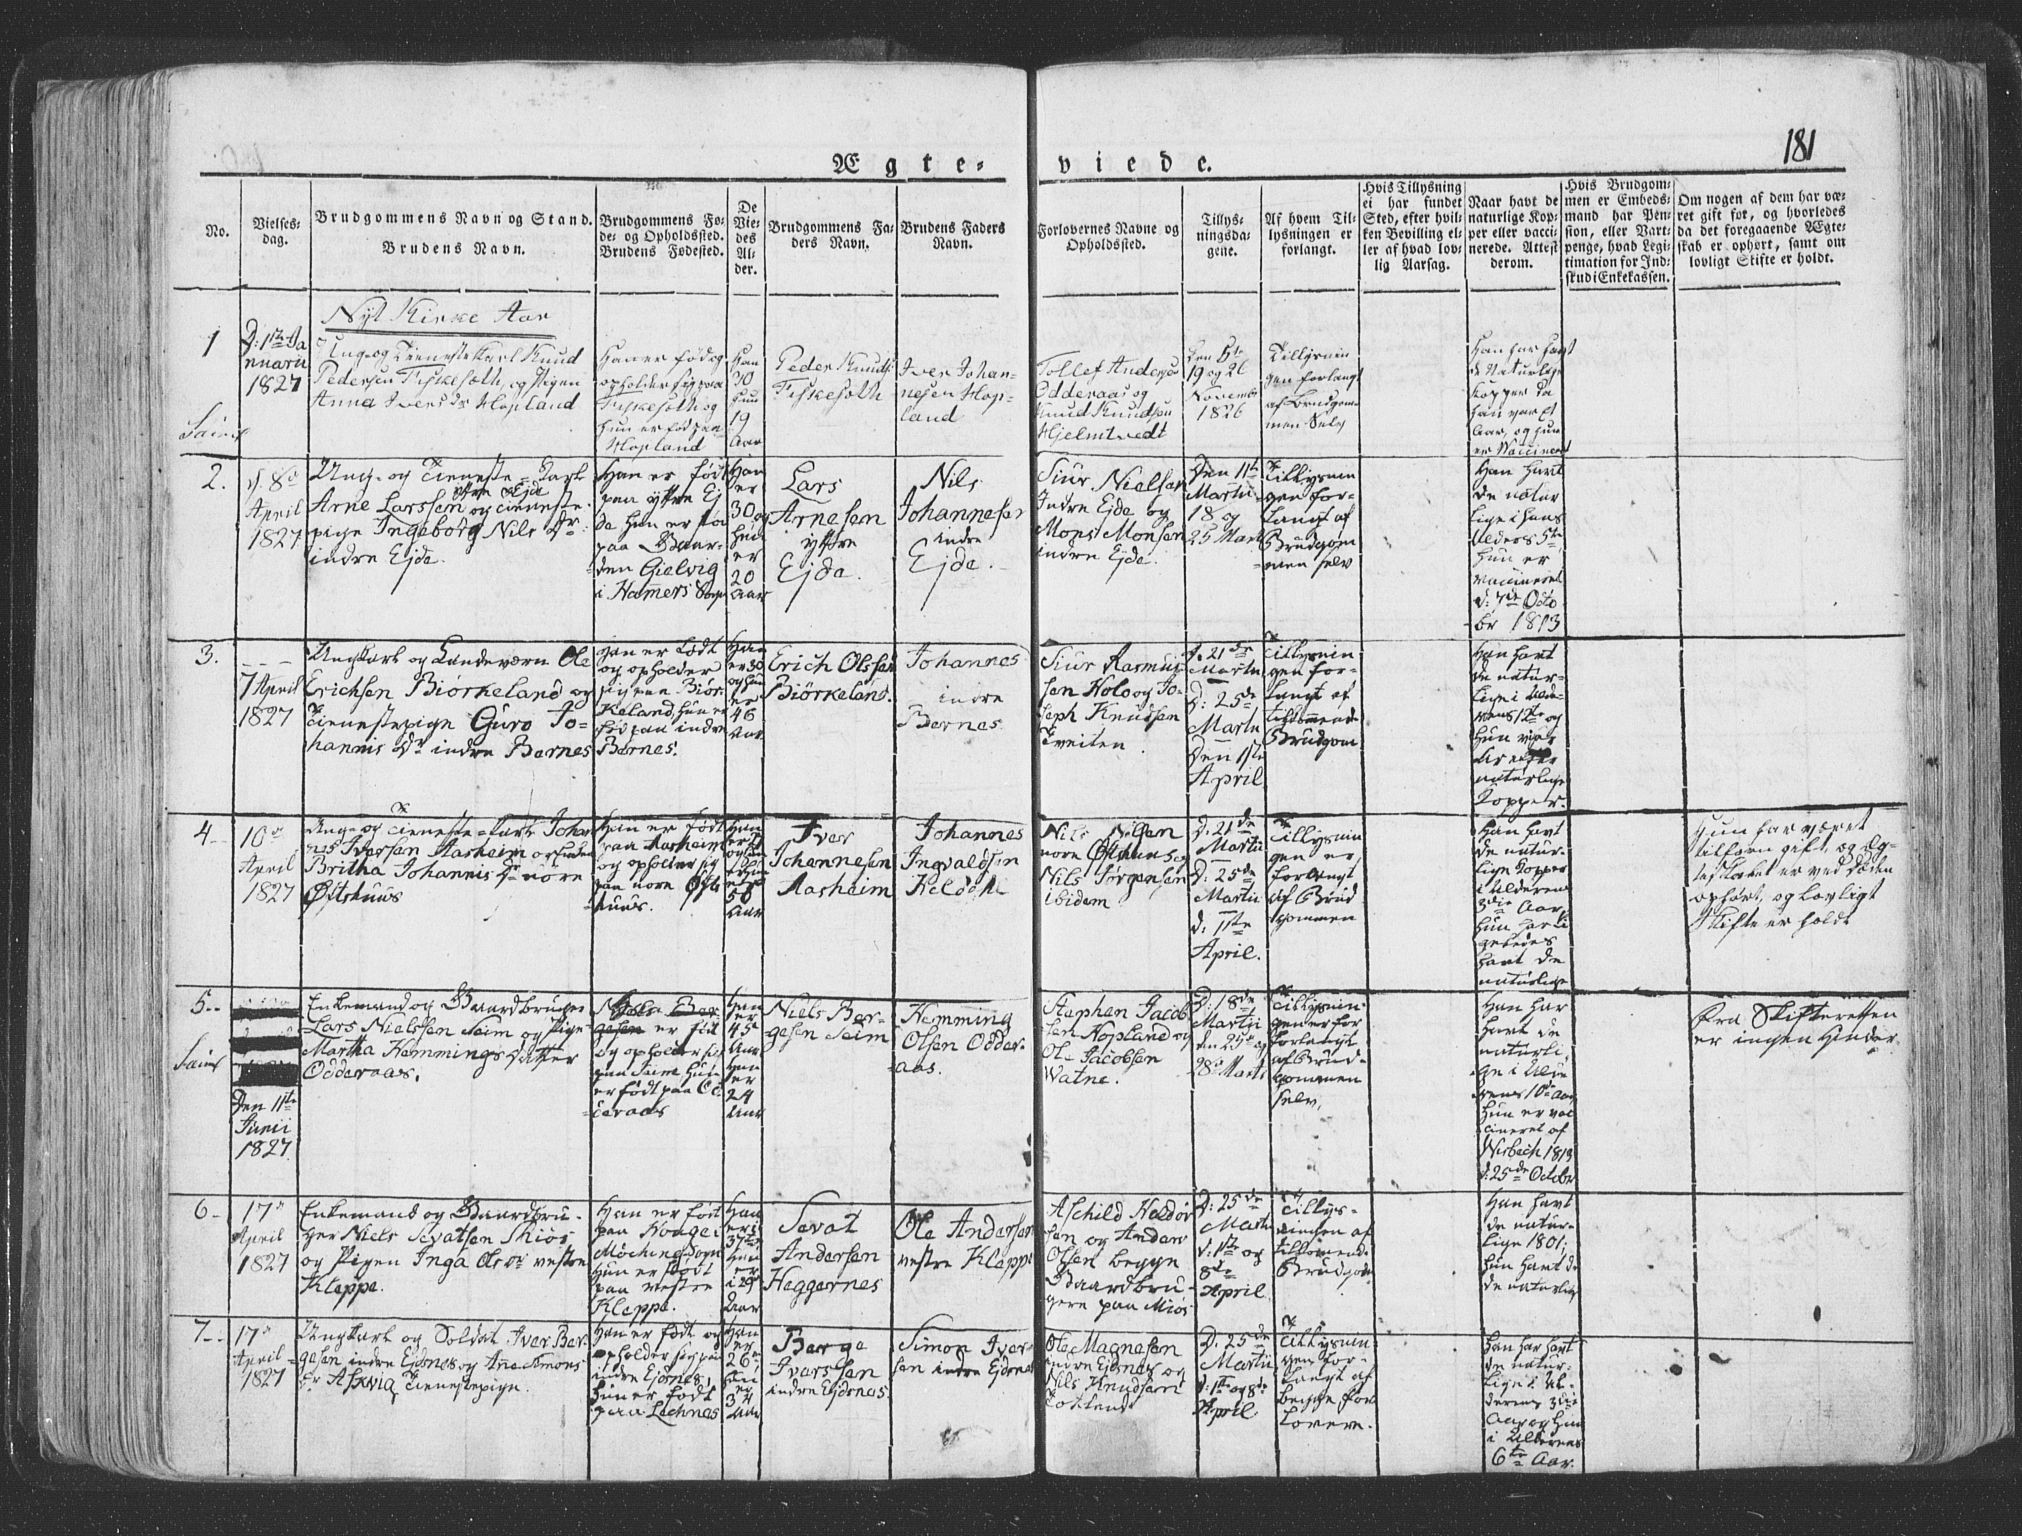 181
Ægte-viede.
No.
Vielses-
dag.
Brudgommens Navn og Stand.
Brudens Navn.
Brudgommens Fø-
de- og Opholdssted.
Brudens Fødested.
De
Vie-
des
Al-
der.
Brudgommens Fa-
ders Navn.
Brudens Faders
Navn.
Forlovernes Navne og
Opholdssted.
Tillys-
ningsda-
gene.
Af hvem Til-
lysningen er
forlangt.
Hvis Tillysning
ei har fundet
Sted, efter hvil-
ken Bevilling el-
ler af hvad lov-
lig Aarsag.
Naar havt de
naturlige Kop-
per eller vacci-
nerede. Attest
derom.
Hvis Brudgom-
men er Embeds-
mand har Pen-
sion, eller Vart-
penge, hvad Legi-
timation for Ind-
skud i Enkekassen.
Om nogen af dem har væ-
ret gift før, og hvorledes
da det foregaaende Ægte-
skab er ophørt, samt om
lovligt Skifte er holdt.
Nyt Kirke Aar
1
D: 1te Ja
nuarii
1827
Ung- og Tieneste Karl Knud
Pedersen Fiskesæth, og Pigen
Anna Iversdr Hopland
Han er fød og
opholder sig paa
Fiskesæth og
hun er fød paa
Hopland
Han
30
hun
19
Aar
Peder Knuds
Fiskesæth
Iver Johan-
nesen Hop-
land
Tollef Anders
Odderaas og
Knud Knudsen
Hjelmtvedt
Den 5te
19 og 26
Novemb
1826
Tillysnin
gen forlangt
af Brudgom-
men Selv
Han har havt
de Naturlige
Kopper da
han var et
Aar, og hun
er Vaccineret
2.
d. 8de
April
1827
Ung- og Tieneste-Karl
Arne Larssen ytre Ejde og Tieneste-
pige Ingeborg Nils Dr
indre Ejde.
Han er født
paa ytre Ej
de hun er fød
paa Gaar-
den Gielvig
i Hamers Sogn
Han
er
30 og
hun
er
20
Aar
Lars
Arnesen
ytre
Ejde.
Nils
Johannesen
indre
Ejde.
Siur Nielsen
Indre Ejde og
Mons Monsen
indre Ejde.
Den 11te
Martii
18 og
25 Marti
Tillysnin
gen for-
langt af
Brudgom
men selv
Han havt
de natur
lige i hans
Alders 5te
hun er
vaccineret
d: 7de Octo
br 1813
3.
7 April
1827
Ungkarl og Landeværn Ole
Erichsen Biørkeland og
Tienestepige Guro Jo-
hannis Dr indre Bernes
Han er født
og opholder
sig paa Biør-
keland, hun er
fød paa indre
Bernes.
Han
er 30
og hun
er
46
Aar
Erich Olssen
Biørkeland.
Johannes
indre
Bernes
Siur Rasmus
sen Holo og Jo-
seph Knudsen
Tveiten.
D: 21de
Martii
D: 25de
Martii
Den 1ste
April
Tillysnin
gen for-
langt af
tilkommende
Brudgom
Han havt
de natur-
lige i Alde-
rens 12te og
hun var
naturlige
Kopper.
4
10de
April
1827
Ung- og Tieneste-Karl Johan
nes Iversen Aasheim og Enken
Britha Johannis Dr nore
Øftshuus
Han er født
paa Aasheim
og opholder sig
paa nore Øfts
huus.
50
Aar
Iver
Johannesen
Aasheim
Johannes
Ingvaldsen
Keldahl
Nils Nilsen
nore Øftshuus og
Nils Jørgensen
ibidem
D: 21de
Martii
D: 25de
Martii
d: 1ste
April.
Tillysnin
gen er
forlangt
af Brud
gommen
Han havt
de natur-
lige Kopper
i Alderens
3die Aar,
hun har li
geledes
havt de
naturlige
Hun har været
tilforn gift, og Æg-
teskabet er ved Døden
ophørt, og lovligt
Skifte er holdt
5
Den 11te
Junii
1827
Enkemand og Gaardbruger
Lars Nielssen Seim og Pige
Martha Hemmings Datter
Odderaas.
er fød
og opholder sig
paa Seim hun
er født paa Od
deraas
Han
er
45
Aar
Hun
er
24
Aar
Niels Ber-
gesen Seim
Hemming
Olsen Odder-
aas.
Stephen Jacob
sen Hopland og
Ole Jacobsen
Watne.
D: 18de
Martii
den 25de og
28de Marti
Tillysnin-
gen er for
forlangt
af Brud-
gommen
selv,
Han har
havt de
naturli-
ge i Alde
rens 10de Aar
Hun er vac
cineret af
Nisbech 1813
d: 25de October
Fra Skifteretten
er ingen Hinder
6
17de
April
1827
Enkemand og Gaardbru-
ger Niels Sevatsen Mios
og Pigen Inga Olsdr vestre
Kleppe.
Han er født
paa Houge i
Møchings Sogn
hun er født
paa vestre
Kleppe.
Han
er i
37te
hun
er
i 29
Aar
Sevat
Andersen
Heggernes
Ole Anderssen
vestre Kleppe
Aschild Heldør
sen og Anders
Olsen begge
Gaardbru-
gere paa Mios
D: 25de
Martii
d: 1ste og
8de
April
Tillys-
ningen af
tilkommende
Brudgom
Han havt
de natur-
lige 1801;
hun havt de
de naturlig
7
17de
April
1827
Ungkarl og Soldat Iver Ber-
gesen indre Ejdsnes og Ane Simons
Dr Askvig Tienestepige.
Han er født og
opholder sig paa
indre Ejdsnes,
hun er født
paa Lechnes
Han
er
26
hun
er
34
Aar
Berge
Ivarssen
indre Ejdsnes
Simon Iver-
sen indre Ejdsnes
Ole Magnesen
indre Ejdsnes og
Nils Knudsen
Toklend
D: 25de
Martii
d: 1ste og 8de
April
Tillysnin
gen for-
langt af
begge For
lovere.
Han har havt
de natur-
lige i Al-
derens 3die
Aar og hun
i Alderens
6te Aar.